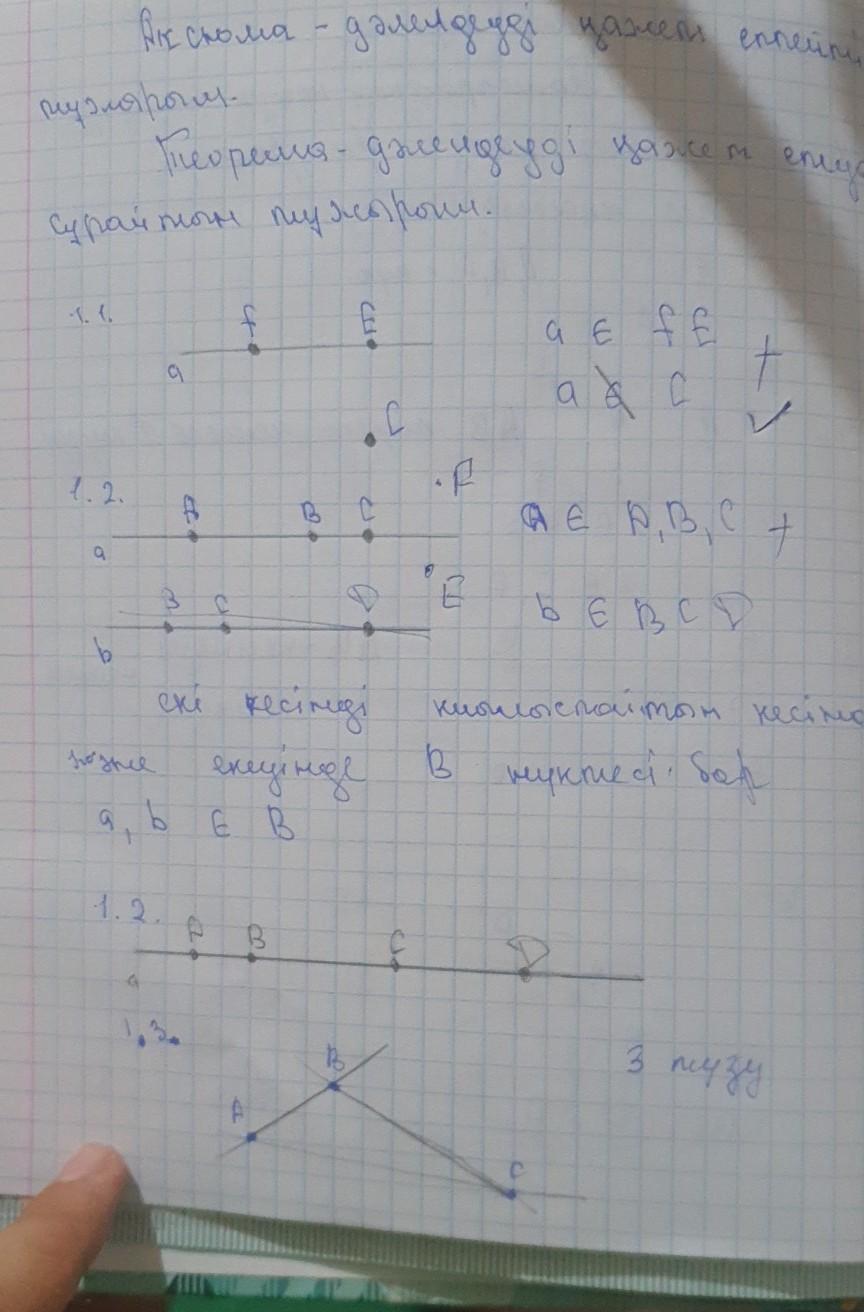 Аксиома - дәлелдеуді қажет етпейтін
тұжырым.
Теорема - дәлелдеуді қажет етуд
сұрайтын тұжырым.
1.1.
f E
a
a ∈ f E +
a ∉ C ✓
C
1.2.
F
A B C
a
a ∈ A, B, C +
E
B C D
b
b ∈ B C D
екі кесінді қиылыспайтын кесінд
және екеуінде B нүктесі бар
a, b ∈ B
1.2.
A B C D
a
1.3.
B
A
C
3 түзу